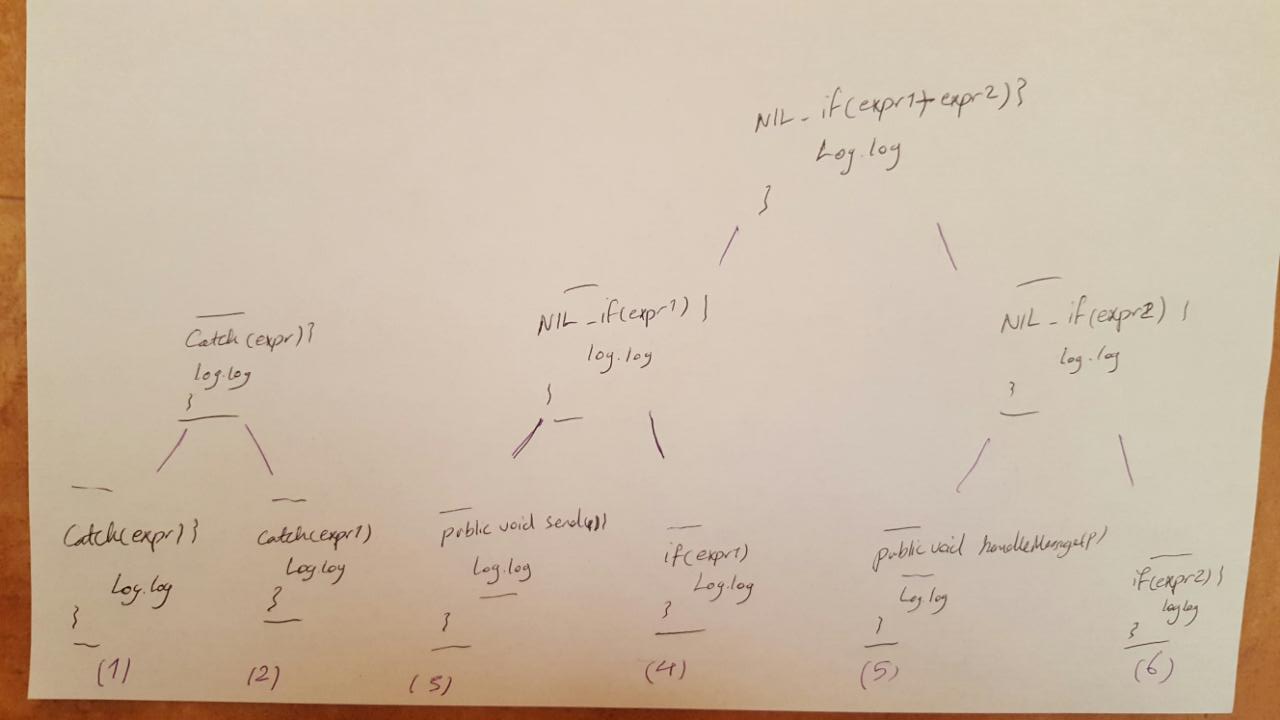 NIL - if(expr1+expr2)}
Log.log
}
Catch(expr)}
log.log
}
NIL - if(expr1) }
log.log
}
NIL - if(expr2) }
log.log
}
Catch(expr)}
Log.log
}
(1)
catch(expr1)
Log.log
}
(2)
public void send()}
log.log
}
(3)
if(expr1)
Log.log
}
(4)
public void handleMessage(p)
Log.log
}
(5)
if(expr2)}
log.log
}
(6)